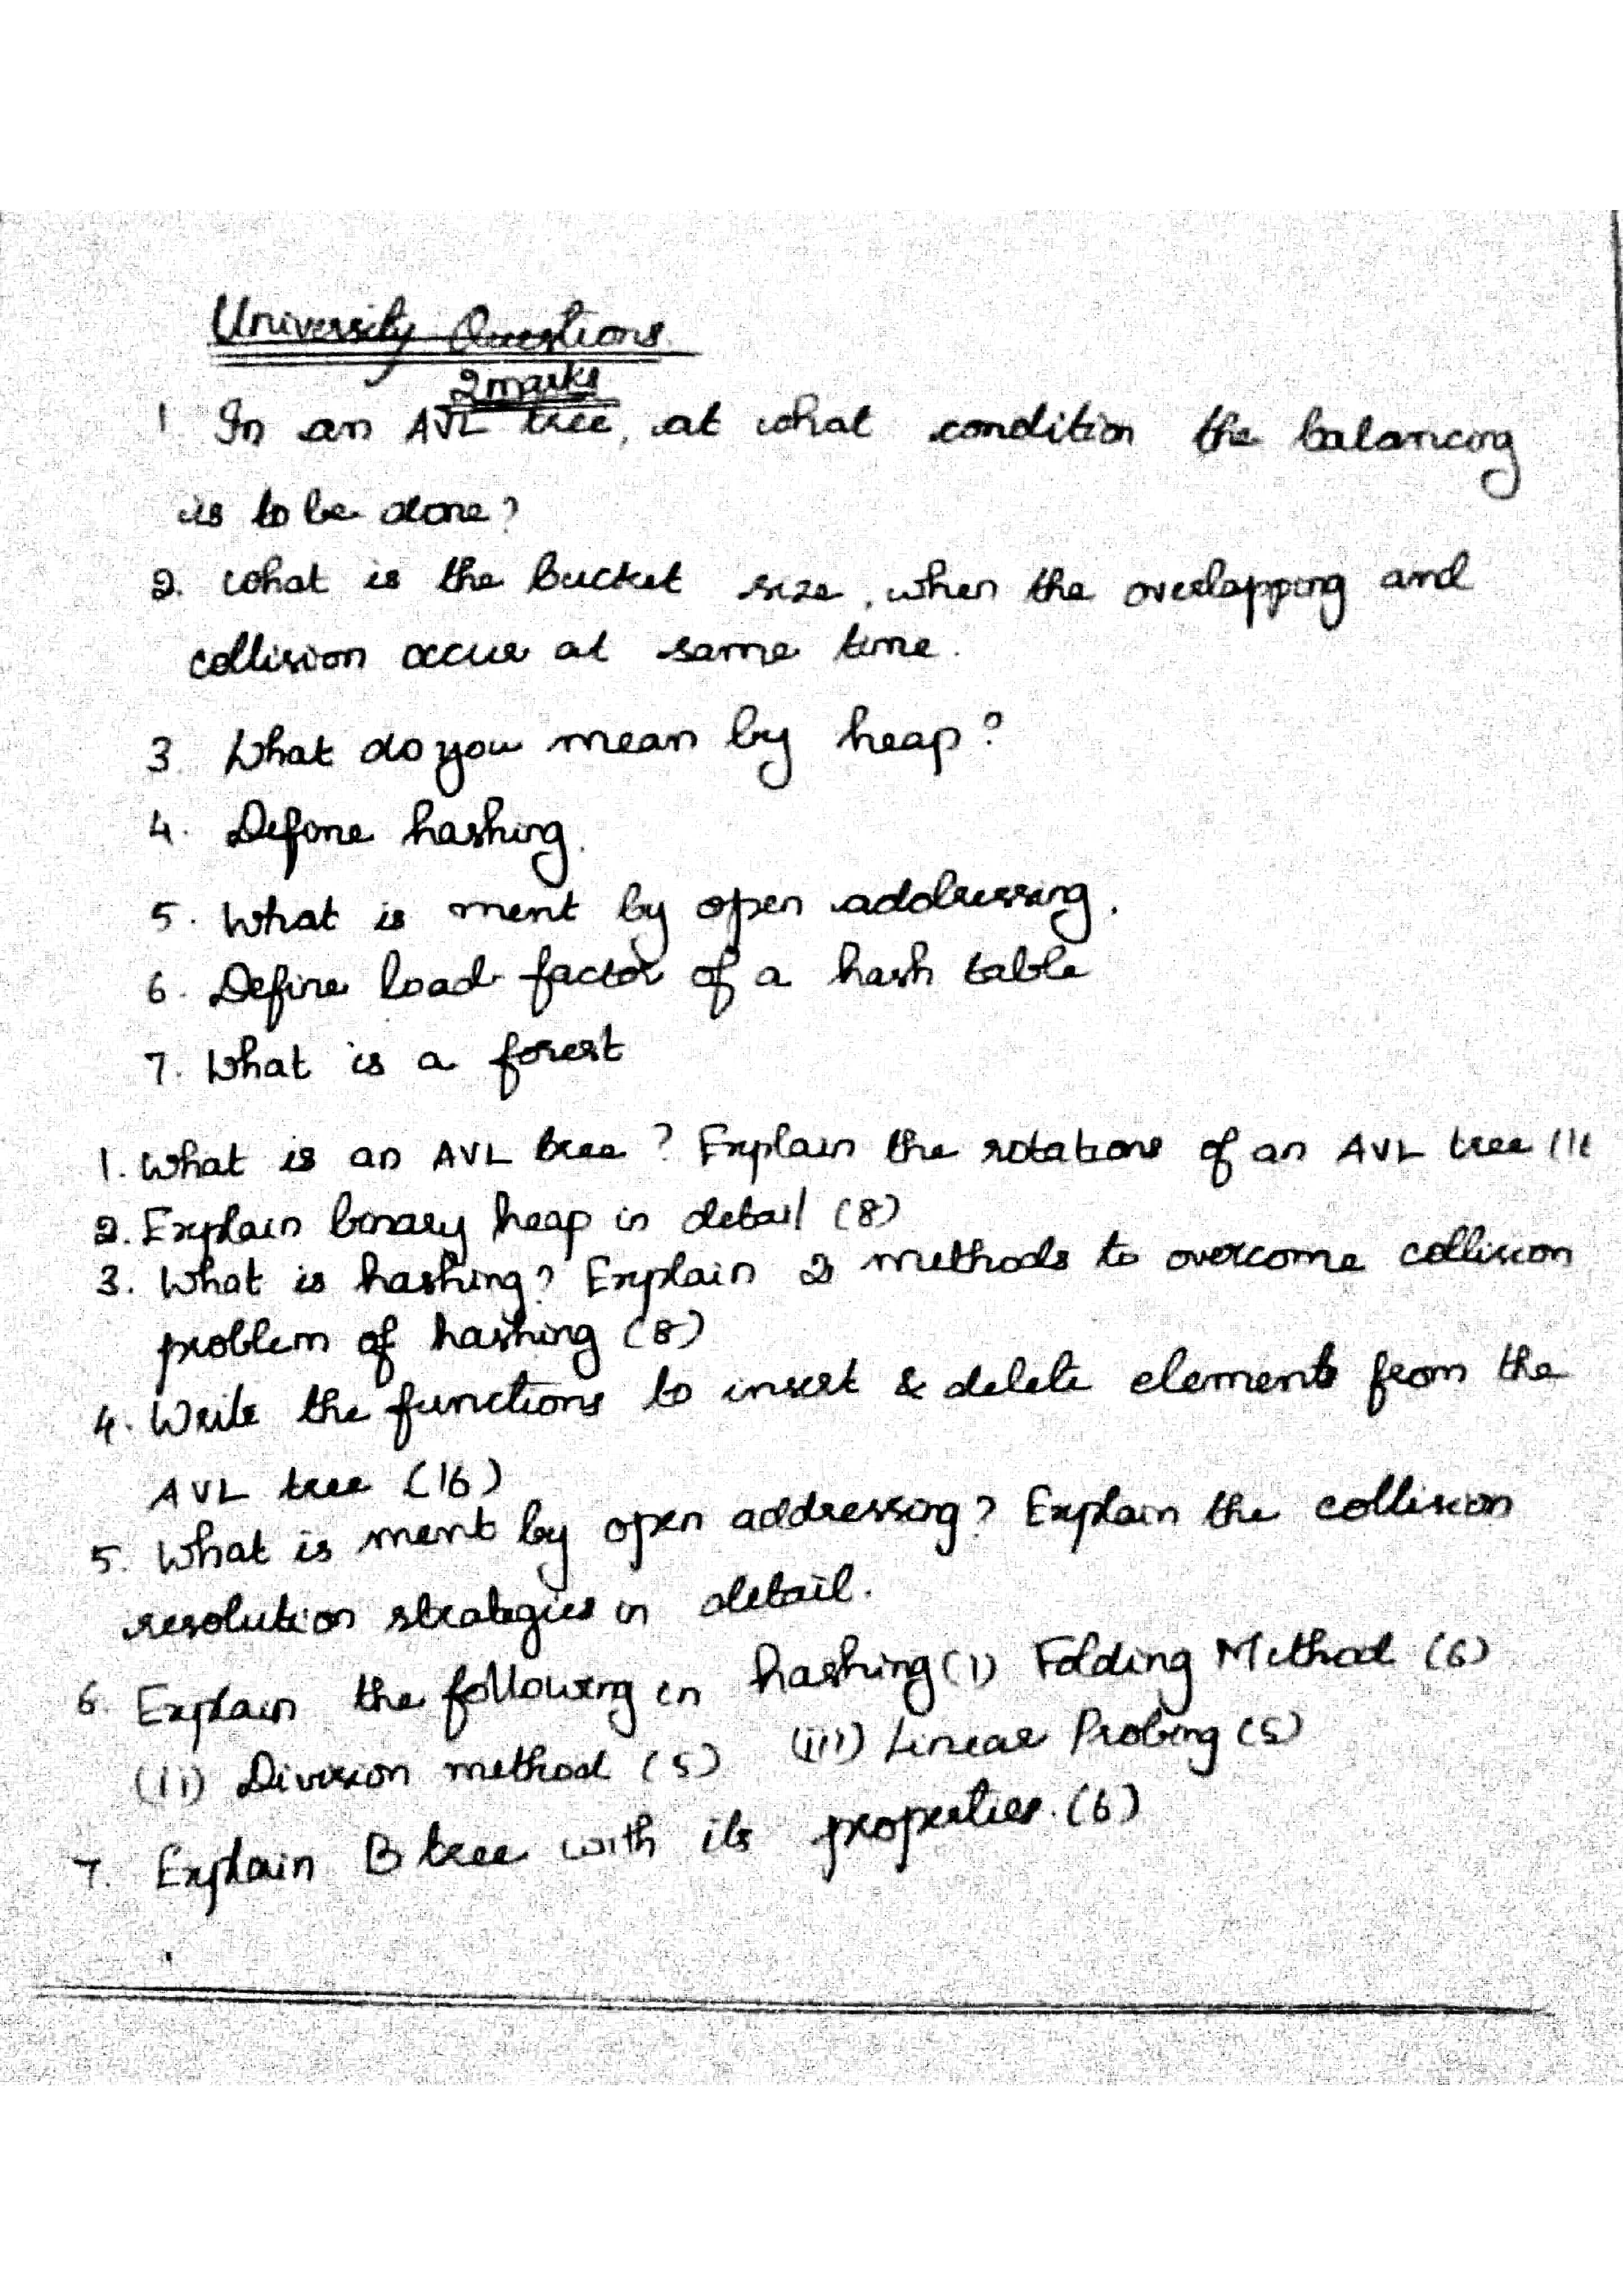 University Questions
2 marks
1 In an AVL tree, at what condition the balancing
is to be done?
2. What is the bucket size, when the overlapping and
collision occur at same time.
3. What do you mean by heap?
4. Define hashing.
5. What is ment by open addressing.
6. Define load factor of a hash table
7. What is a forest
1. What is an AVL tree? Explain the rotations of an AVL tree
2. Explain binary heap in detail (8)
3. What is hashing? Explain 2 methods to overcome collision
problem of hashing (8)
4. Write the functions to insert & delete elements from the
AVL tree (16)
5. What is ment by open addressing? Explain the collision
resolution strategies in detail.
6. Explain the following in hashing (i) Folding Method (6)
(ii) Division method (5) (iii) Linear Probing (5)
7. Explain B tree with its properties. (6)